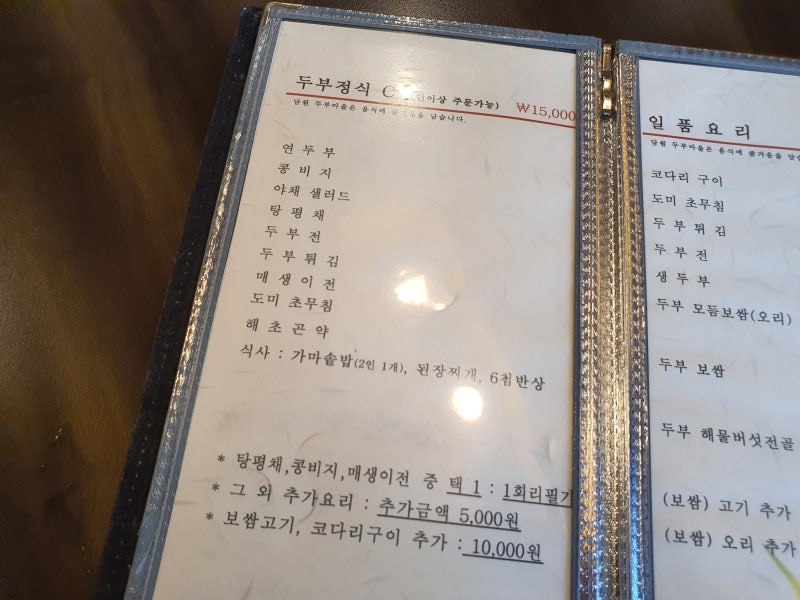 두부정식 C 이상 주문가능) ₩15,000
담원 두부마을은 음식에 즐거움을 담습니다.
연두부
콩비지
야채 샐러드
탕평채
두부전
두부튀김
매생이전
도미 초무침
해초곤약
식사 : 가마솥밥(2인 1개), 된장찌개, 6첩반상
* 탕평채,콩비지,매생이전 중 택 1 : 1회리필가
* 그 외 추가요리 : 추가금액 5,000원
* 보쌈고기, 코다리구이 추가 : 10,000원
일품요리
담원 두부마을은 음식에 즐거움을 담습
코다리 구이
도미 초무침
두부튀김
두부전
생두부
두부 모듬보쌈(오리)
두부 보쌈
두부 해물버섯전골
(보쌈) 고기 추가
(보쌈) 오리 추가